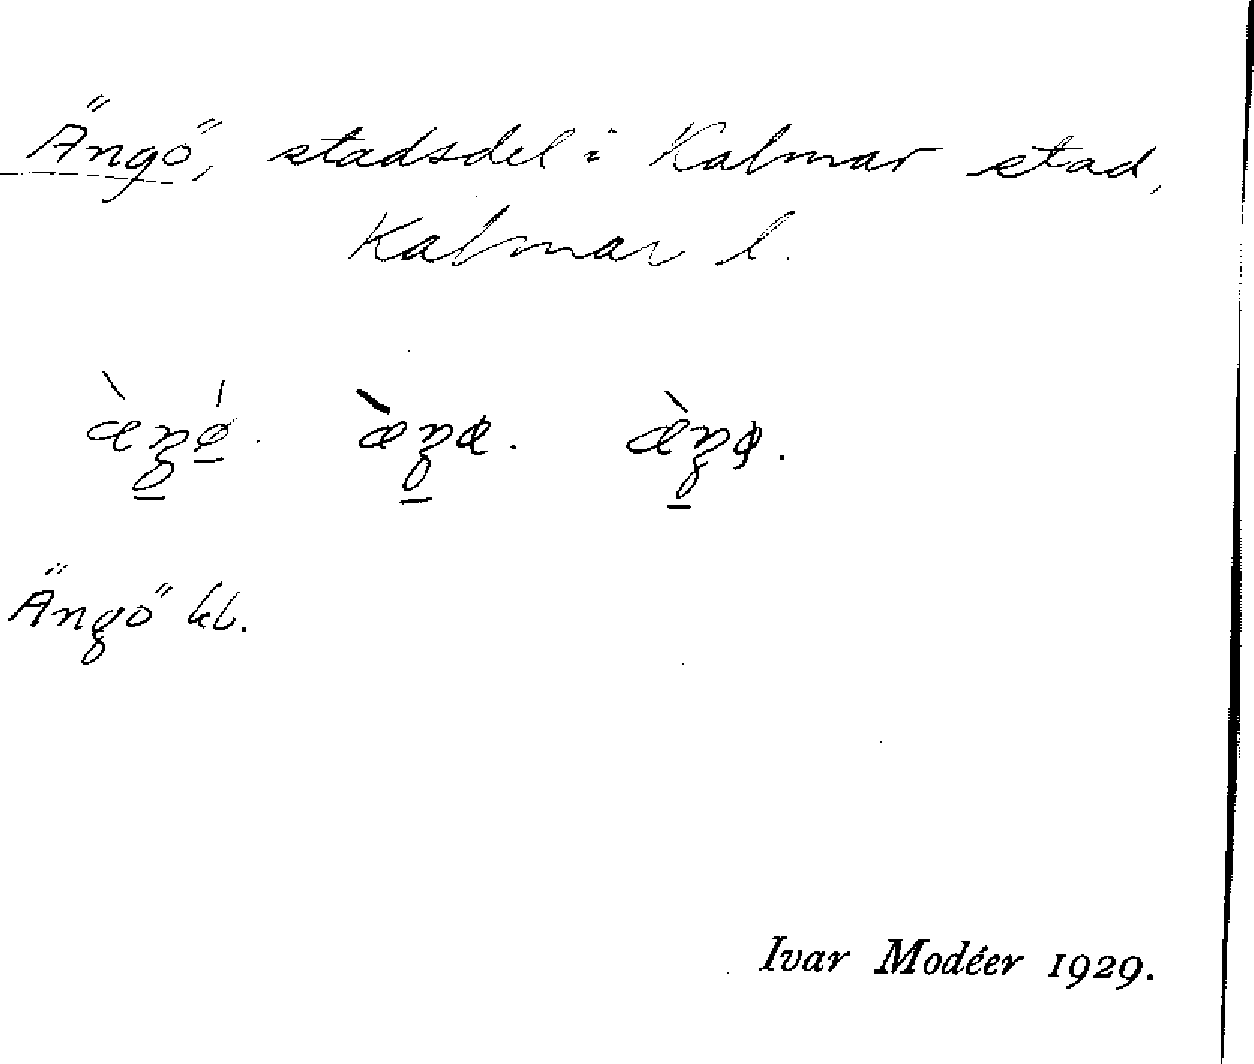 Ängö, stadsdel i Kalmar stad,
Kalmar l.
Ängö kl.
Ivar Modéer 1929.